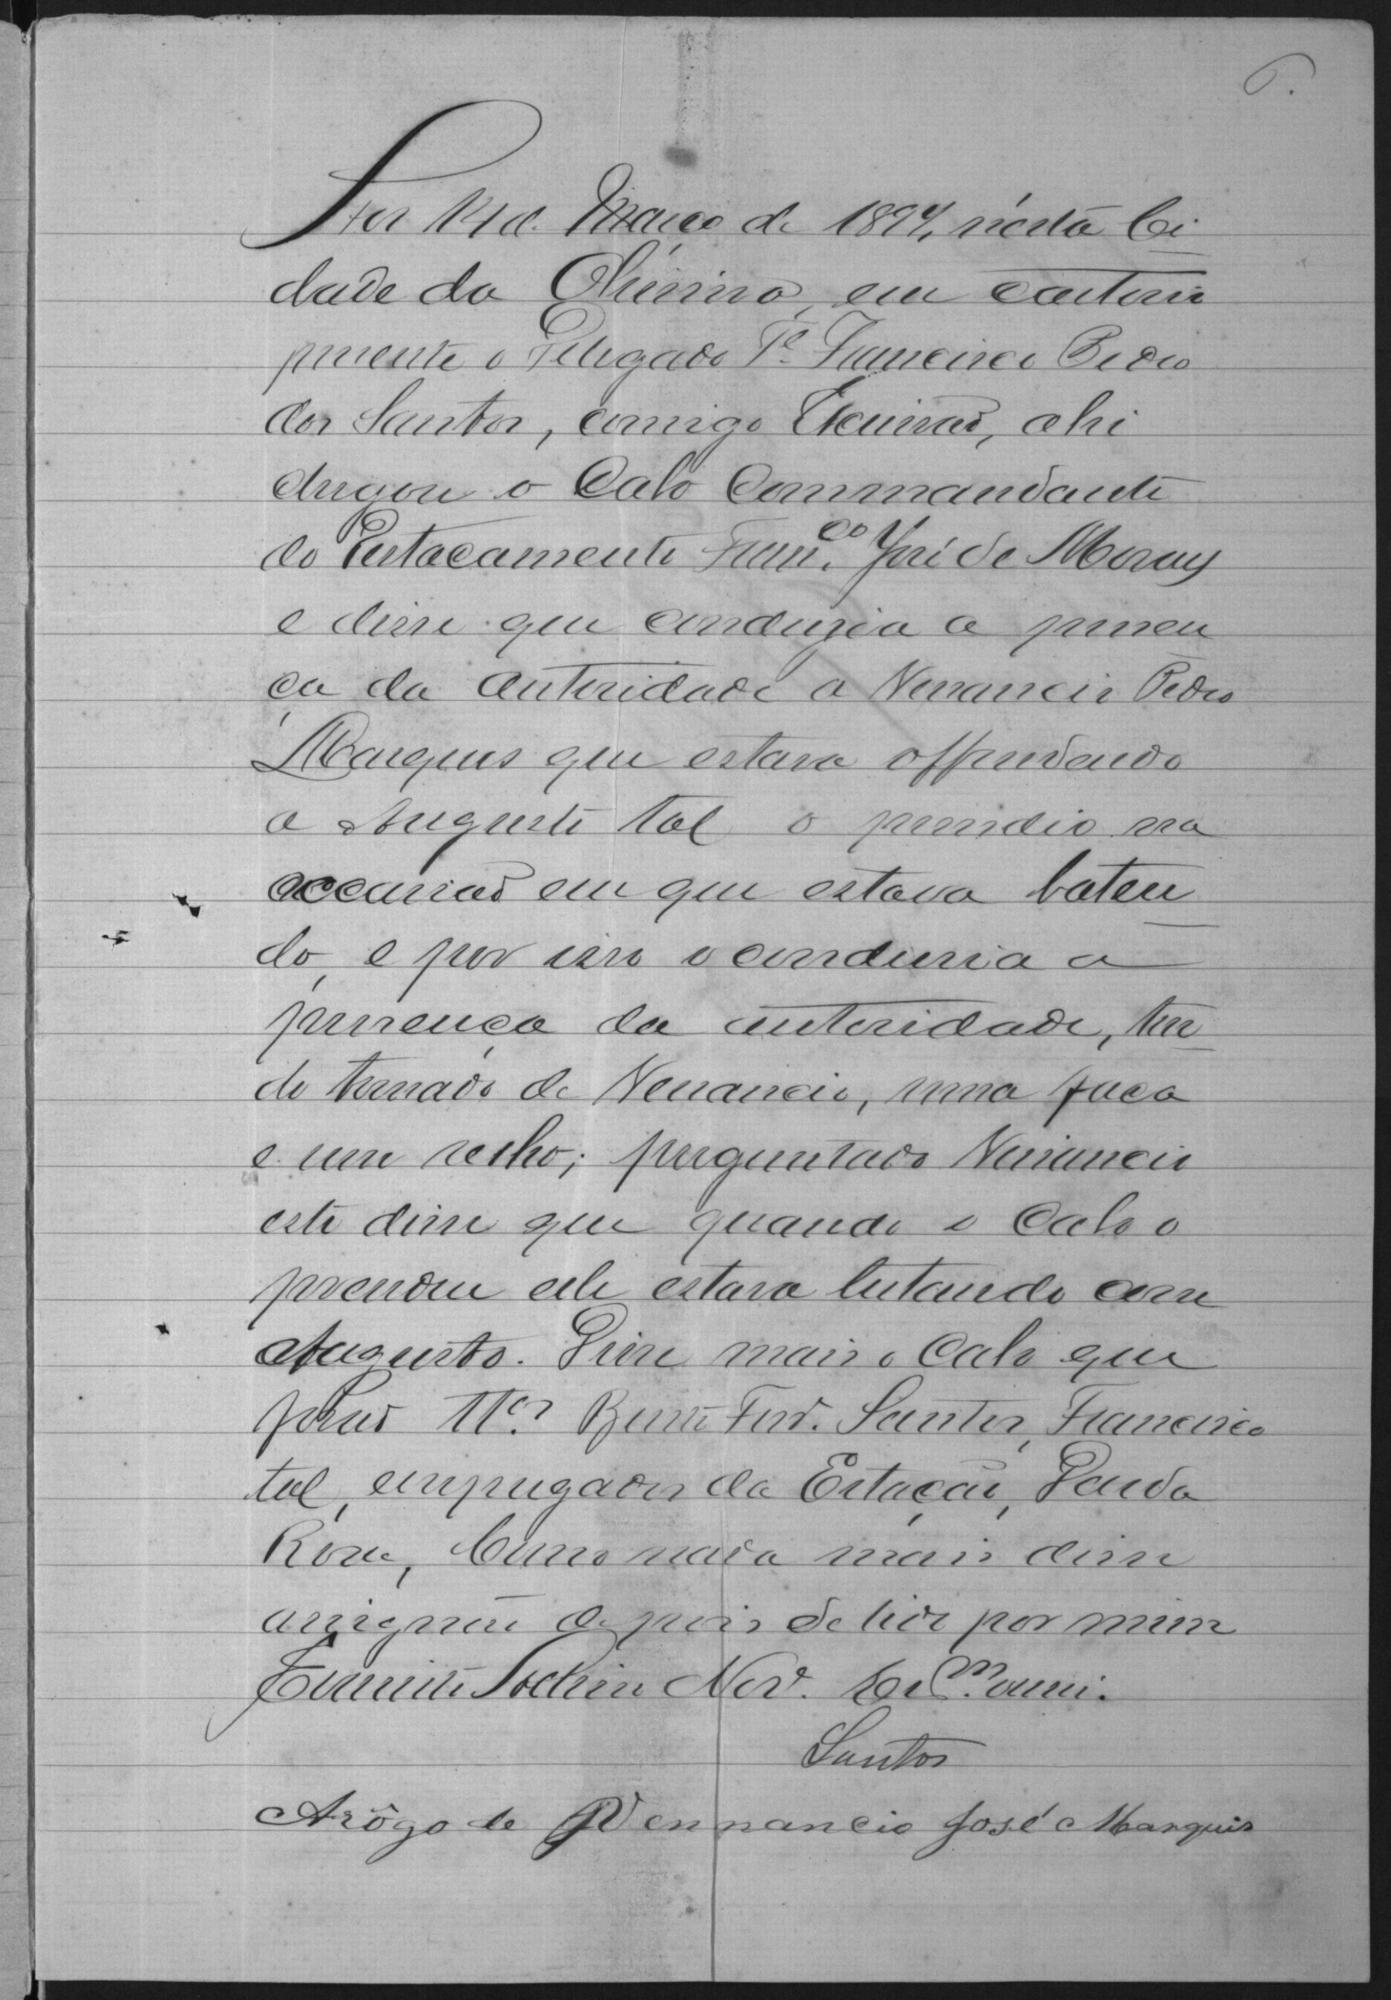 6.
Aos 14 d. Março de 1894, nésta Ci
dade da Limeira, em cartorio
presente o Delegado Te. Francisco Pedro
dos Santos, comigo Escrivão, ahi
chegou o Cabo Commandante
do Destacamento Franco. José de Moraes
e disse que condusia a presen
ça da autoridade a Venancio Pedro
Marques que estava offendendo
a Augusto tal o prendeo na
occasião em que estava baten
do, e por isso o condusia a
presença da autoridade, ten
do tomado de Venancio, uma faca
e um relho; perguntado Venancio
este disse que quando o Cabo o
prendeu elle estava lutando com
Augusto. Disse mais o Cabo que
forão Tas. Bento Ferr. Santos, Francisco
tal, empregados da Estação,
Rosa, Como nada mais disse
assignão depois de lido por mim
Nov.
Santos
Arôgo de Vennancio José Marquis